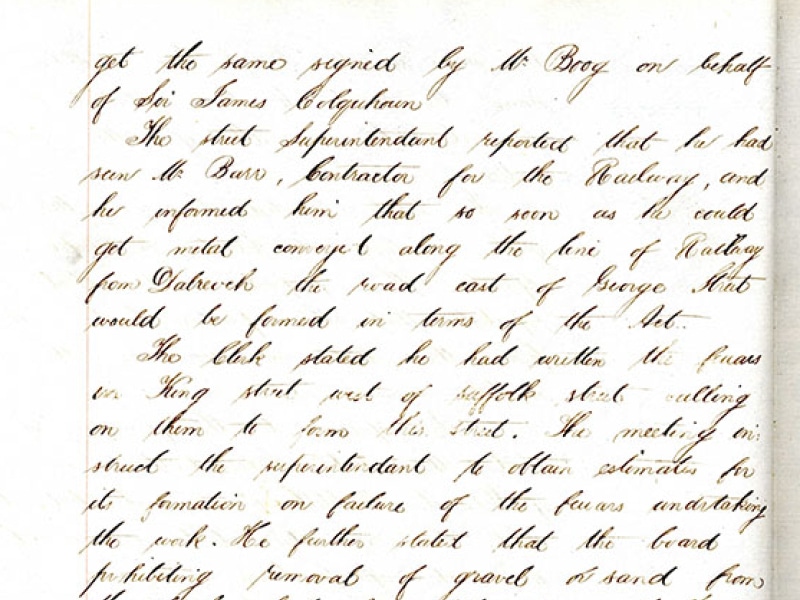 get the same signed by Mr Boog on behalf
of Sir James Colquhoun
The street Superintendant reported that he had
seen Mr Barr, Contractor for the Railway, and
he informed him that so soon as he could
get metal conveyed along the line of Railway
from Dalreoch the road east of George Street
would be formed in terms of the Act.
The Clerk stated he had written the feuars
on King street west of Suffolk street calling
on them to form this street. The meeting in:
struct the superintendant to obtain estimates for
its formation on failure of the feuars undertaking
the work. He further stated that the board
prohibiting removal of gravel or sand from